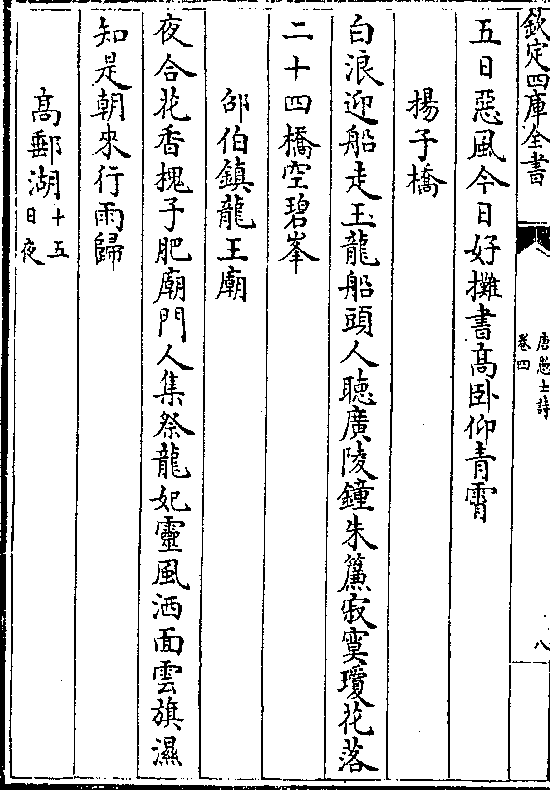 欽定四庫全書
唐愚士詩
卷四
八
五日惡風今日好攤書高卧仰青霄
揚子橋
白浪迎船走玉龍船頭人聽廣陵鐘朱簾寂寞瓊花落
二十四橋空碧峯
邵伯鎮龍王廟
夜合花香槐子肥廟門人集祭龍妃靈風洒面雲旗濕
知是朝來行雨歸
高郵湖十五日夜